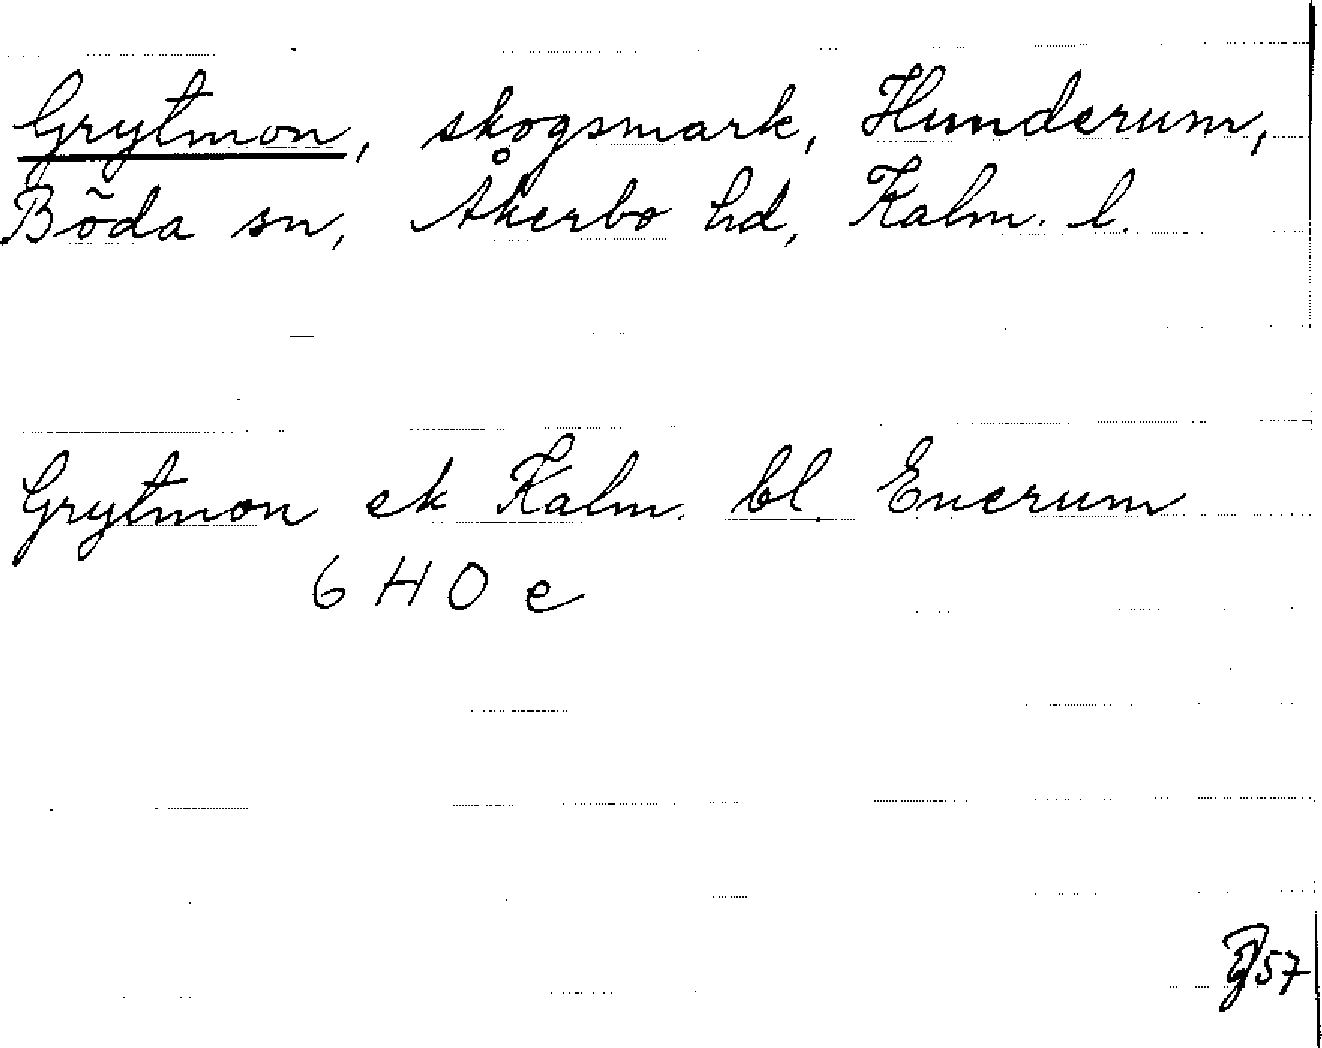 Grytmon, skogsmark, Hunderum,
Böda sn, Åkerbo hd, Kalm. l.
Grytmon ek Kalm. bl. Enerum
6 H 0 e
57